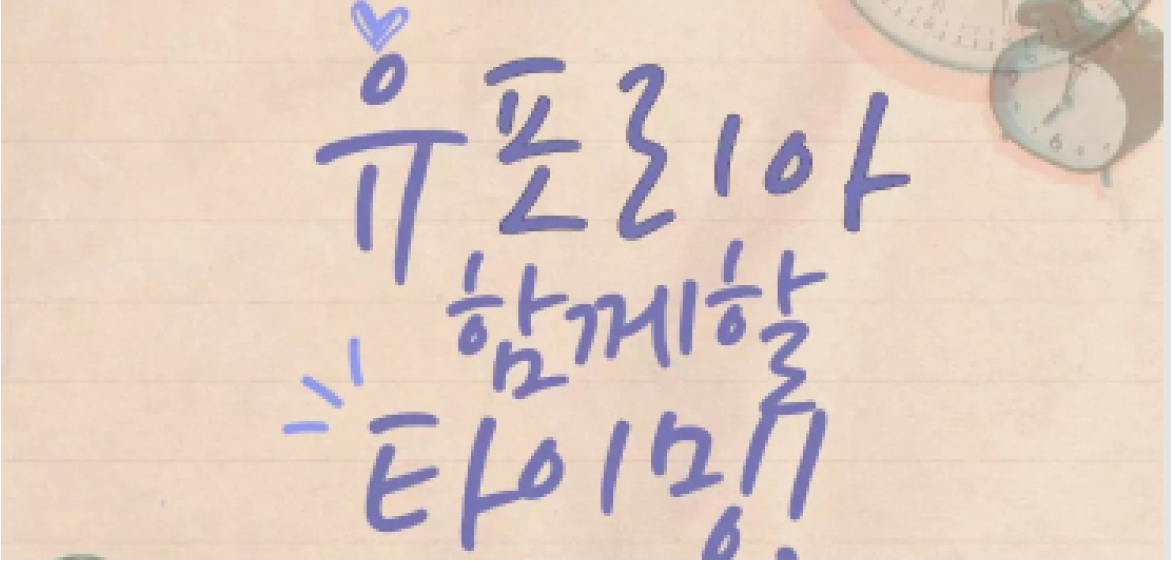 유포리아
함께할
타이밍!